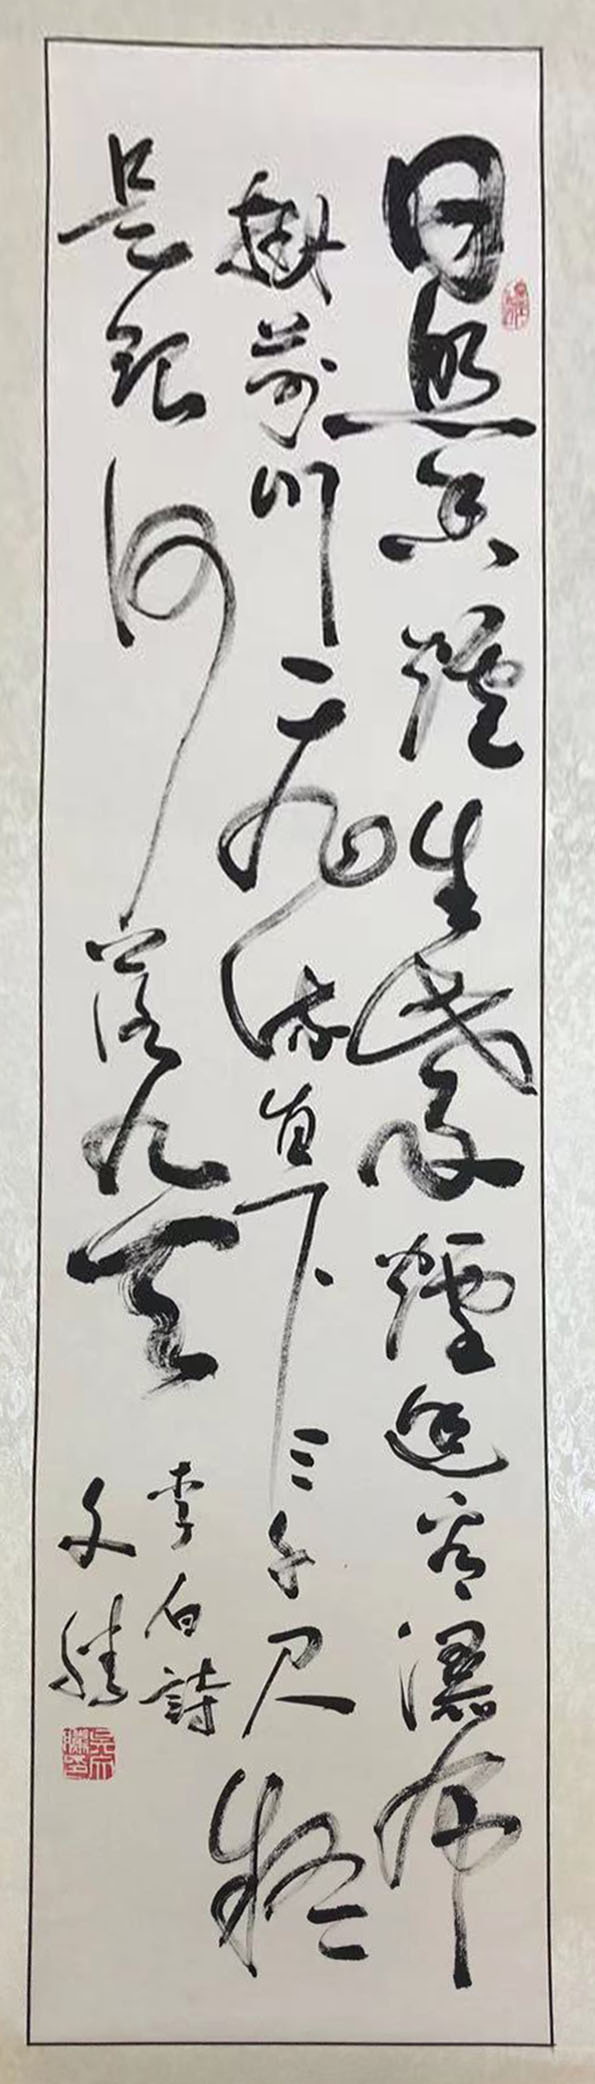 日照香爐生紫煙遙看瀑布
掛前川飛流直下三千尺疑
是銀河落九天
李白詩
文